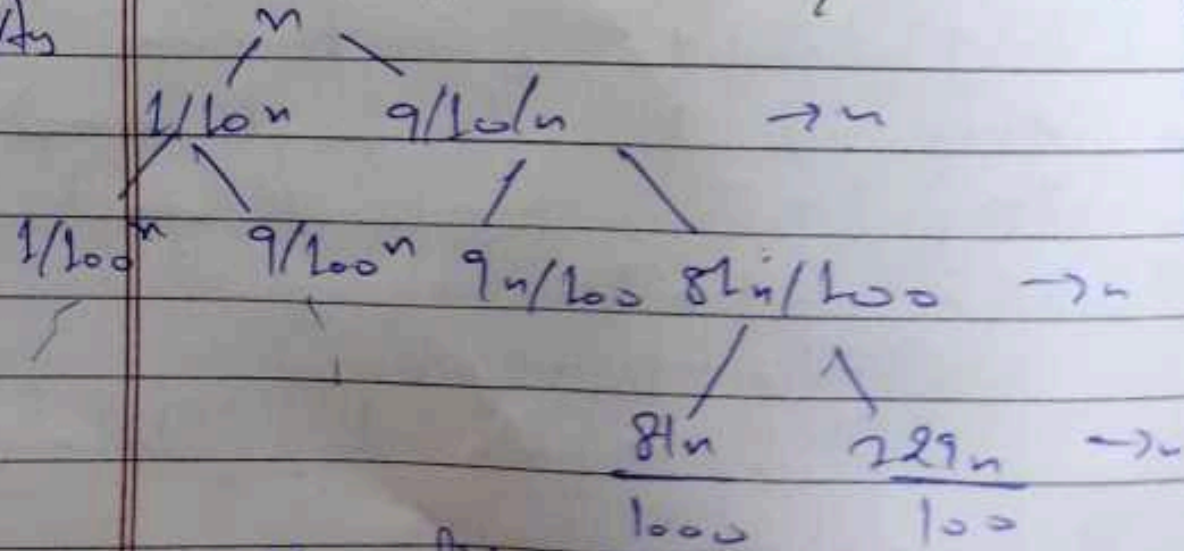 n
1/10n 9/10/n → n
1/100n 9/100n 9n/100 81n/100 → n
81n 729n → n
1000 100